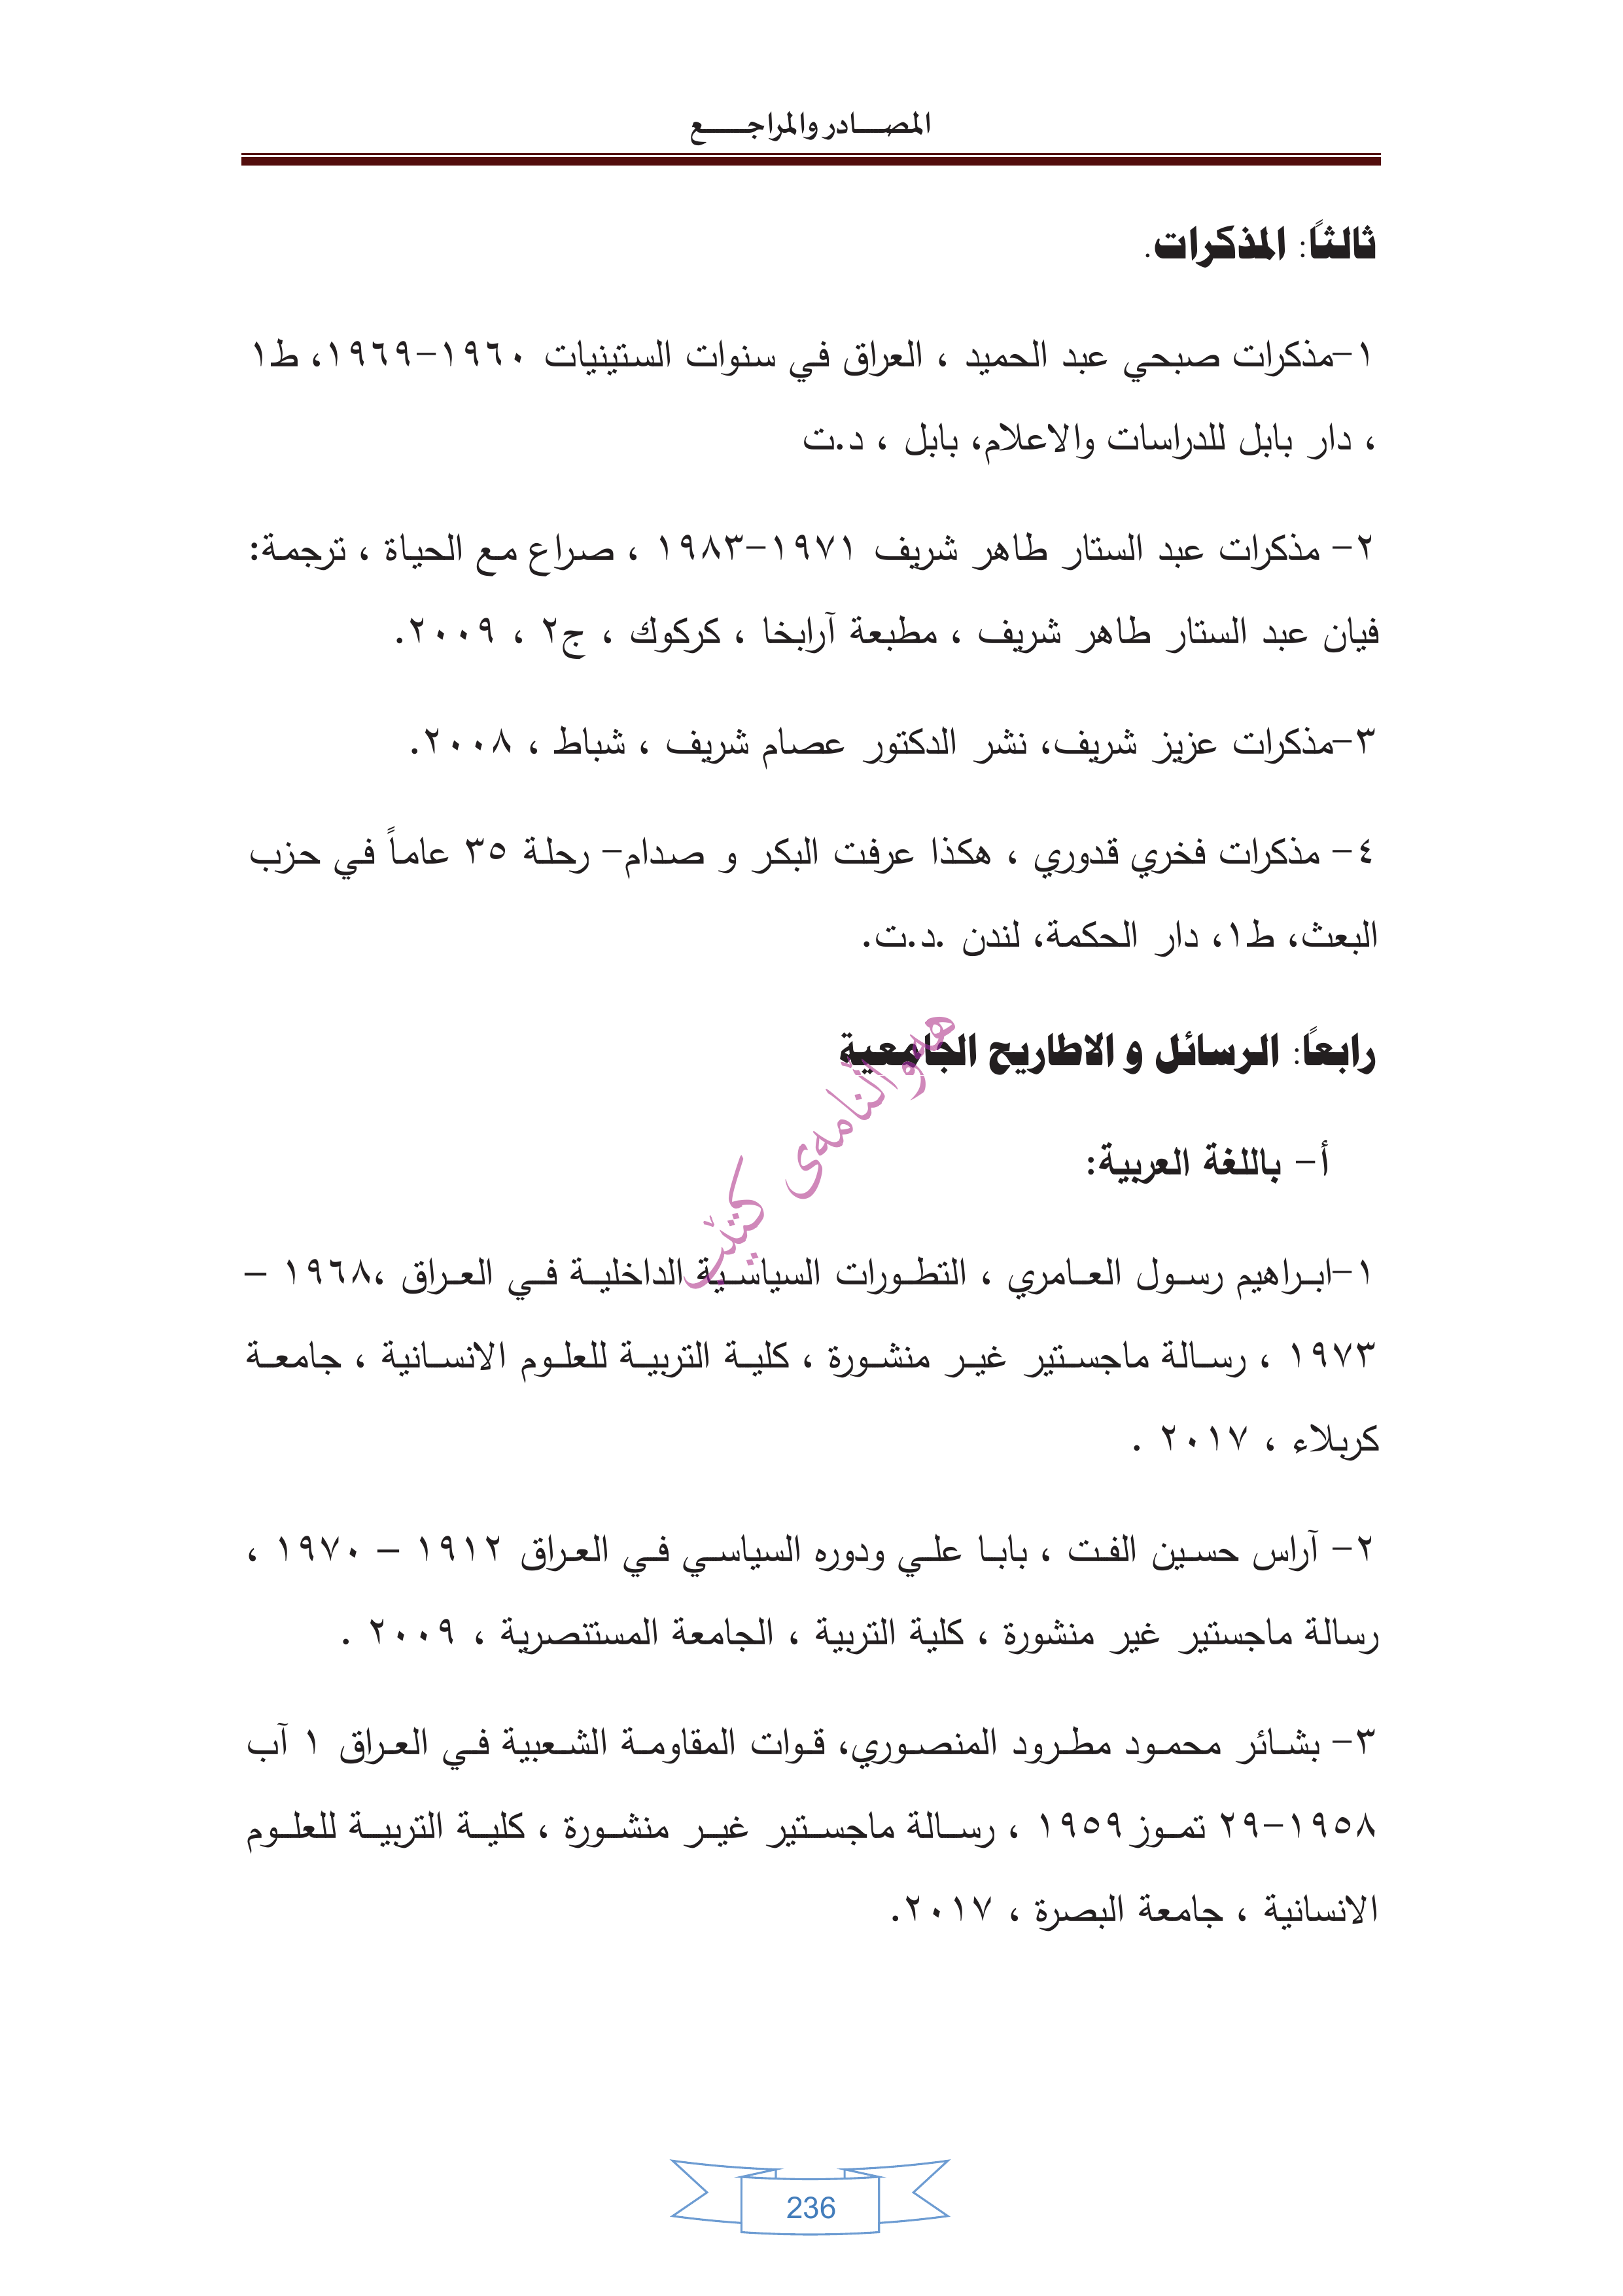 المصادر والمراجع
ثالثاً: المذكرات.
١-مذكرات صبحي عبد الحميد ، العراق في سنوات الستينيات ١٩٦٠-١٩٦٩، ط١
، دار بابل للدراسات والاعلام، بابل ، د.ت
٢- مذكرات عبد الستار طاهر شريف ١٩٧١-١٩٨٣ ، صراع مع الحياة ، ترجمة:
فيان عبد الستار طاهر شريف ، مطبعة آرابخا ، كركوك ، ج٢ ، ٢٠٠٩.
٣-مذكرات عزيز شريف، نشر الدكتور عصام شريف ، شباط ، ٢٠٠٨.
٤- مذكرات فخري قدوري ، هكذا عرفت البكر و صدام- رحلة ٣٥ عاماً في حزب
البعث، ط١، دار الحكمة، لندن .د.ت.
رابعاً: الرسائل و الاطاريح الجامعية
أ- باللغة العربية:
١-ابراهيم رسول العامري ، التطورات السياسية الداخلية في العراق ،١٩٦٨ –
١٩٧٣ ، رسالة ماجستير غير منشورة ، كلية التربية للعلوم الانسانية ، جامعة
كربلاء ، ٢٠١٧ .
٢- آراس حسين الفت ، بابا علي ودوره السياسي في العراق ١٩١٢ – ١٩٧٠ ،
رسالة ماجستير غير منشورة ، كلية التربية ، الجامعة المستنصرية ، ٢٠٠٩ .
٣- بشائر محمود مطرود المنصوري، قوات المقاومة الشعبية في العراق ١ آب
١٩٥٨-٢٩ تموز١٩٥٩ ، رسالة ماجستير غير منشورة ، كلية التربية للعلوم
الانسانية ، جامعة البصرة ، ٢٠١٧.
هەواڵنامەی کتێب
236